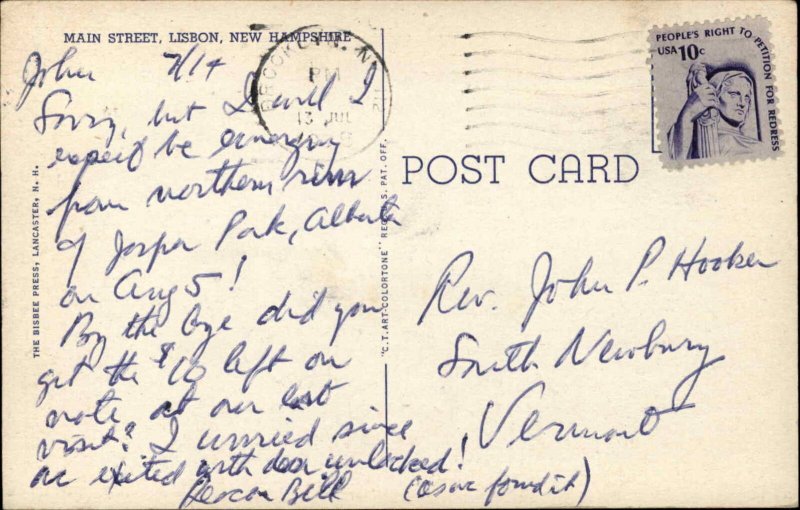 MAIN STREET, LISBON, NEW HAMPSHIRE
John 7/14
Sorry, but I will I
expect be emerging
from northern rim
of Jasper Park, Alberta
on Aug 5!
By the bye did you
get the $10 left on
note at our last
visit? I worried since
we exited with door unlocked!
Deacon Bill (as we found it)
THE BISBEE PRESS, LANCASTER, N. H.
"C.T. ART-COLORTONE" REG. U.S. PAT. OFF.
POST CARD
BROOKLYN, N
PM
13 JUL
PEOPLE'S RIGHT TO PETITION FOR REDRESS
USA 10c
Rev. John P. Hooker
South Newbury
Vermont